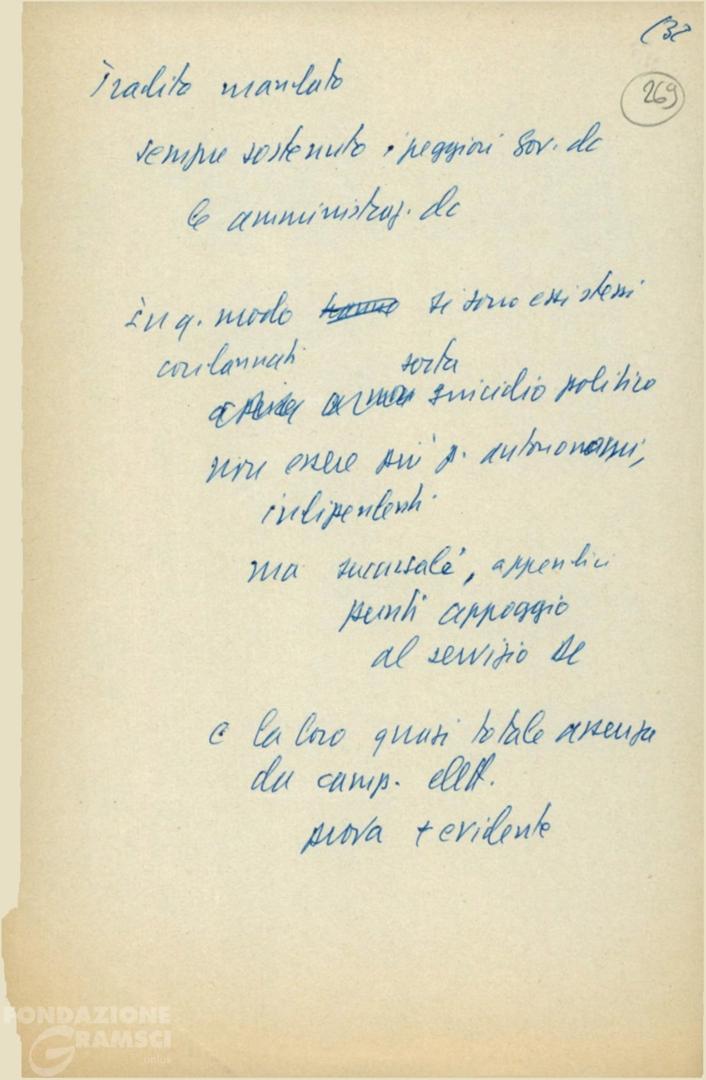 (32
269
Tradito mandato
sempre sostenuto i peggiori Gov. dc
le amministraz. dc
In q. modo hanno si sono essi stessi
condannati sorta
a una suicidio politico
non essere più p. autonomi,
indipendenti
ma succursale, appendici
punti appoggio
al servizio DC
e la loro quasi totale assenza
da camp. elett.
prova + evidente
FONDAZIONE
GRAMSCI
onlus